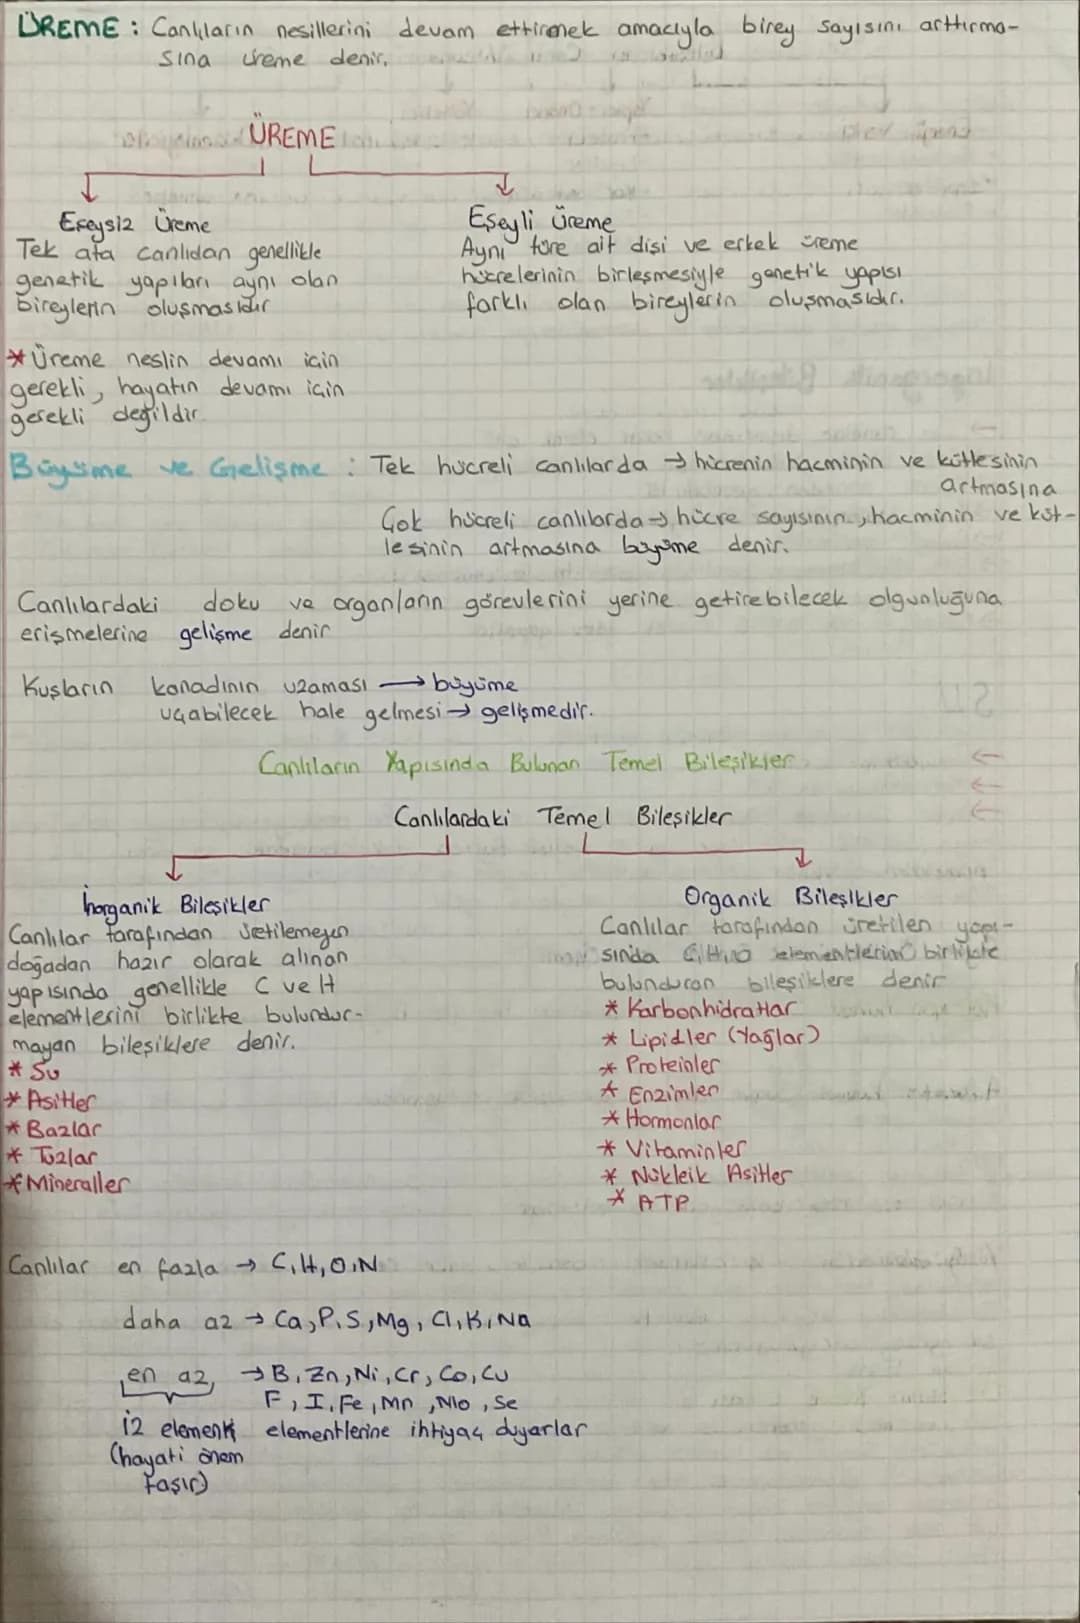 ÜREME : Canlıların nesillerini devam ettirmek amacıyla birey sayısını arttırma-
sına üreme denir.
ÜREME
Eşeysiz Üreme
Tek ata canlıdan genellikle
genetik yapıları aynı olan
bireylerin oluşmasıdır
Eşeyli Üreme
Aynı türe ait dişi ve erkek üreme
hücrelerinin birleşmesiyle genetik yapısı
farklı olan bireylerin oluşmasıdır.
* Üreme neslin devamı için
gerekli, hayatın devamı için
gerekli değildir.
Büyüme ve Gelişme : Tek hücreli canlılarda → hücrenin hacminin ve kütlesinin
artmasına
Çok hücreli canlılarda → hücre sayısının, hacminin ve küt-
lesinin artmasına büyüme denir.
Canlılardaki doku ve organların görevlerini yerine getirebilecek olgunluğuna
erişmelerine gelişme denir
Kuşların kanadının uzaması → büyüme
uçabilecek hale gelmesi → gelişmedir.
Canlıların Yapısında Bulunan Temel Bileşikler
Canlılardaki Temel Bileşikler
İnorganik Bileşikler
Canlılar tarafından üretilemeyen
doğadan hazır olarak alınan
yapısında genellikle C ve H
elementlerini birlikte bulundur-
mayan bileşiklere denir.
* Su
* Asitler
* Bazlar
* Tuzlar
* Mineraller
Organik Bileşikler
Canlılar tarafından üretilen yapı-
sında C,H,O elementlerini birlikte
bulunduran bileşiklere denir
* Karbonhidratlar
* Lipidler (Yağlar)
* Proteinler
* Enzimler
* Hormonlar
* Vitaminler
* Nükleik Asitler
* ATP
Canlılar en fazla → C,H,O,N
daha az → Ca,P,S,Mg,Cl,K,Na
en az → B,Zn,Ni,Cr,Co,Cu
F,I,Fe,Mn,Mo,Se
iz element elementlerine ihtiyaç duyarlar
(hayati önem
taşır)